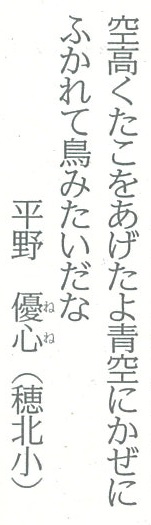 空高くたこをあげたよ青空にかぜに
ふかれて鳥みたいだな
平野　優心（穂北小）
ねね